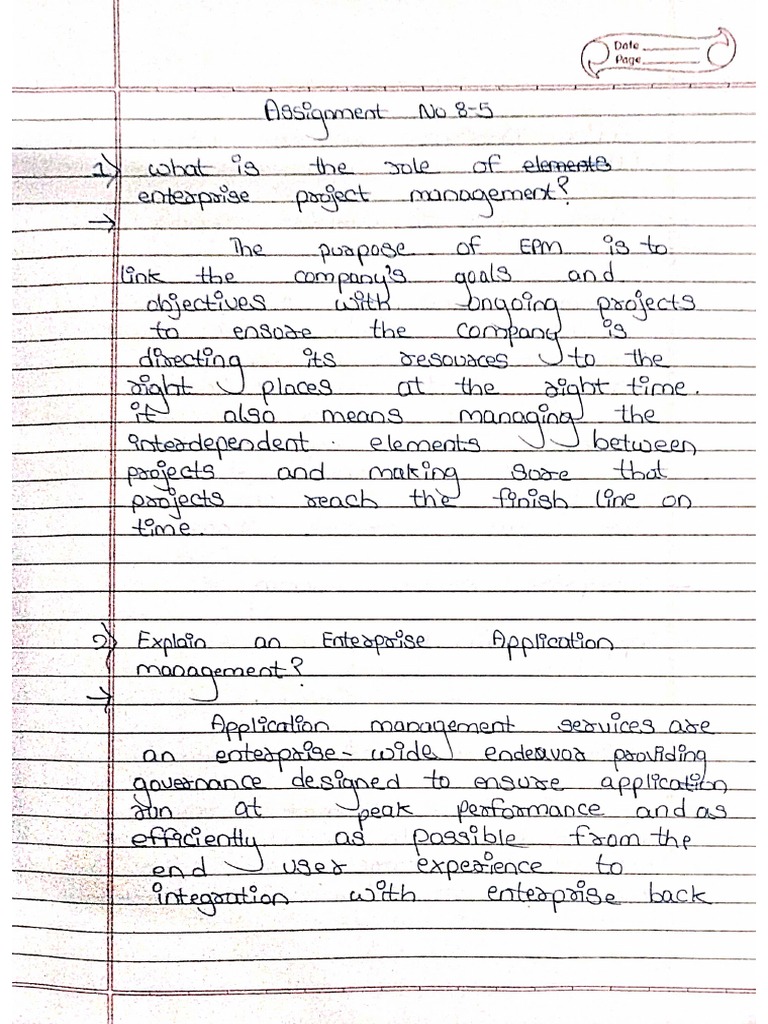 Date
Page
Assignment No 8-5
1) what is the role of elements
enterprise project management?
→
The purpose of EPM is to
link the company's goals and
objectives with ongoing projects
to ensore the company is
directing its resources to the
right places at the right time.
it also means managing the
interdependent elements between
projects and making sore that
projects reach the finish line on
time.
2) Explain an Enterprise Application
management?
→
Application management services are
an enterprise-wide endeavor providing
governance designed to ensure application
run at peak performance and as
efficiently as possible from the
end user experience to
integration with enterprise back